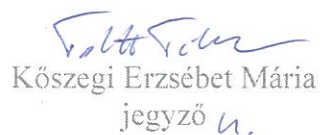 Kőszegi Erzsébet Mária
jegyző